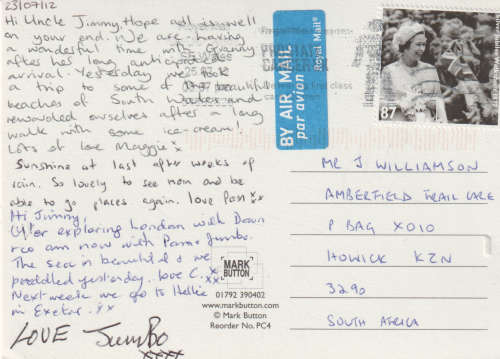 23/07/12
Hi Uncle Jimmy. Hope all is well
on your end. We are having
a wonderful time with Granny
after her long anticipated
arrival. Yesterday we took
a trip to some of the beautiful
beaches of South Wales and
rewarded ourselves after a long
walk with some ice-cream!
Lots of love Maggie x
Sunshine at last after weeks of
rain. So lovely to see mom and be
able to go places again. love Pam xx
Hi Jimmy,
After exploring London with Dawn
+ co am now with Pam + Jumbo.
The sea is beautiful & we
paddled yesterday. love C. xx
Next week we go to Hellie
in Exeter. xx
LOVE Jumbo
xxxx
BY AIR MAIL
par avion
Royal Mail®
87
MARK
BUTTON
01792 390402
www.markbutton.com
© Mark Button
Reorder No. PC4
MR J WILLIAMSON
AMBERFIELD FRAIL CARE
P BAG X010
HOWICK KZN
3290
SOUTH AFRICA